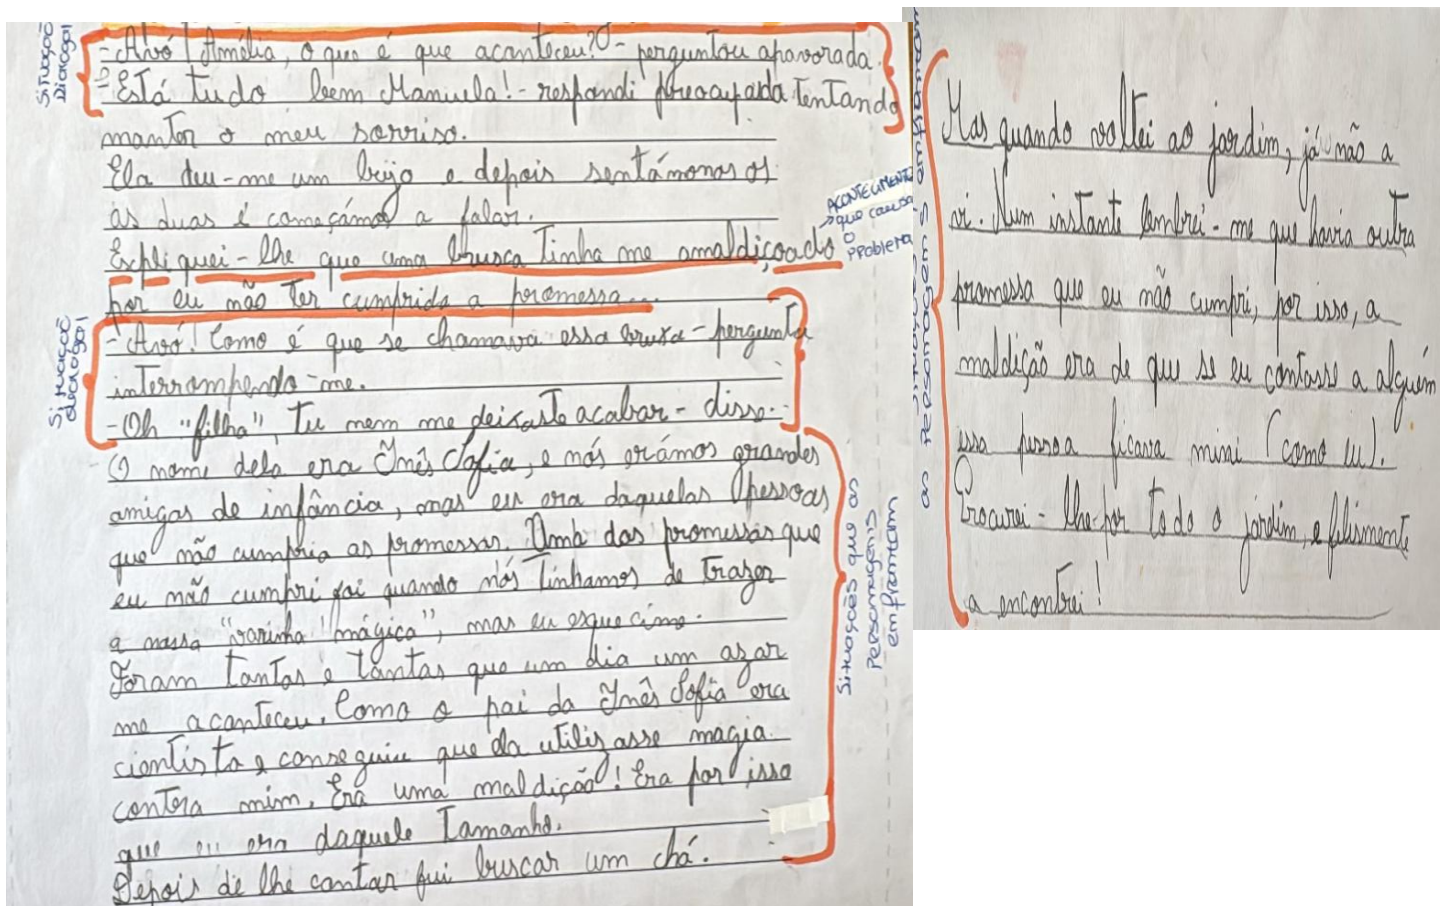 Situação
Dialogal
- Avó Amélia, o que é que aconteceu? - perguntou apavorada.
- Está tudo bem Manuela! - respondi preocupada tentando
manter o meu sorriso.
Ela deu-me um beijo e depois sentámonos os
as duas e começámos a falar.
Expliquei-lhe que uma brusca tinha me amaldiçoado
por eu não ter cumprido a promessa...
ACONTECIMENTO
→ que causa
o
PROBLEMA
Situação
dialogal
- Avó! Como é que se chamava essa bruxa - pergunta
interrompendo-me.
- Oh "filha", tu nem me deixaste acabar - disse.
O nome dela era Inês Sofia, e nós erámos grandes
amigas de infância, mas eu era daquelas pessoas
que não cumpria as promessas. Uma das promessas que
eu não cumpri foi quando nós tinhamos de trazer
a nossa "varinha mágica", mas eu esquecime.
Foram tantas e tantas que um dia um azar
me aconteceu. Como o pai da Inês Sofia era
cientista e conseguiu que ela utilizasse magia
contra mim. Era uma maldição! Era por isso
que eu era daquele tamanho.
Depois de lhe contar fui buscar um chá.
Situações que as
personagens
enfrentam
Situações
as personagens enfrentam
Mas quando voltei ao jardim, já não a
vi. Num instante lembrei-me que havia outra
promessa que eu não cumpri, por isso, a
maldição era de que se eu contasse a alguém
essa pessoa ficava mini (como eu).
Procurei-lhe por todo o jardim, e felismente
a encontrei!